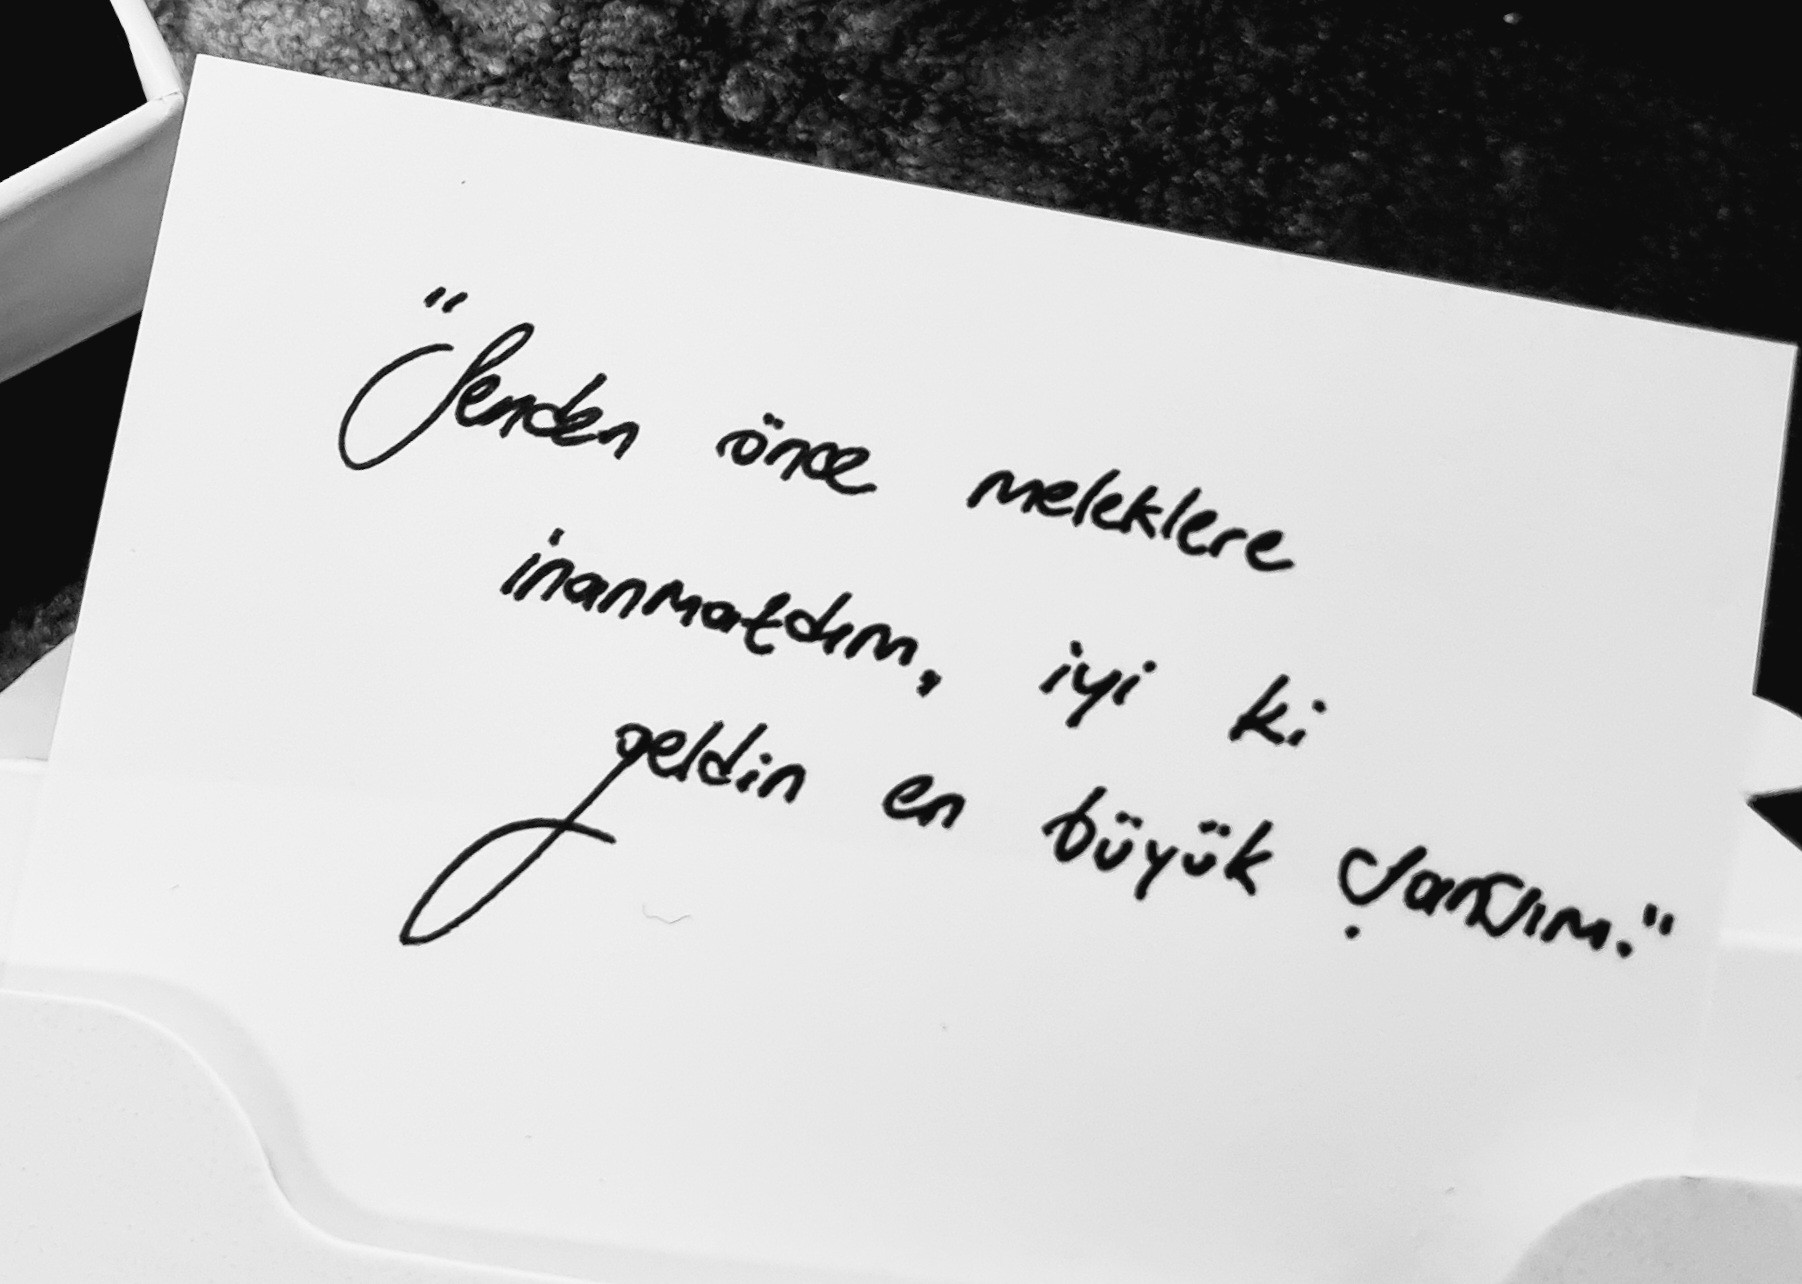 "Senden önce meleklere
inanmazdım, iyi ki
geldin en büyük şansım."